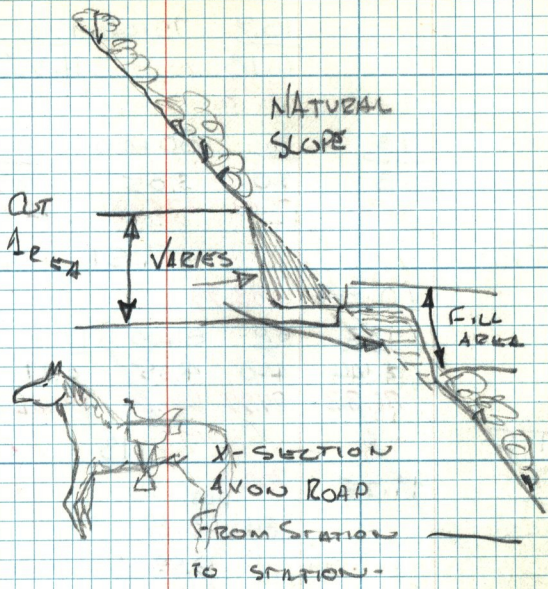 NATURAL
SLOPE
CUT
AREA
VARIES
FILL
AREA
X-SECTION
AVON ROAD
FROM STATION
TO STATION-